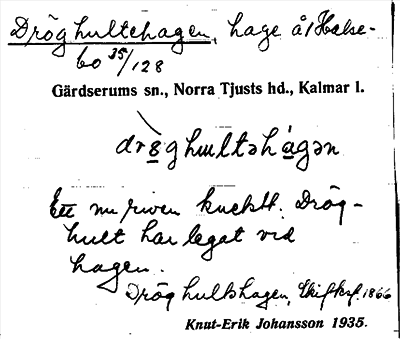 Dröghultehagen, hage å/Halse-
bo 35/128
Gärdserums sn., Norra Tjusts hd., Kalmar l.
drȯghultəhàgən
Ett nu riven knektt. Drög-
hult har legat vid
hagen.
Dröghultshagen, Skifksf. 1866
Knut-Erik Johansson 1935.